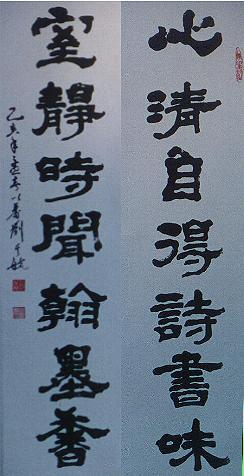 心清自得詩書味
室靜時聞翰墨香
乙亥年
劉